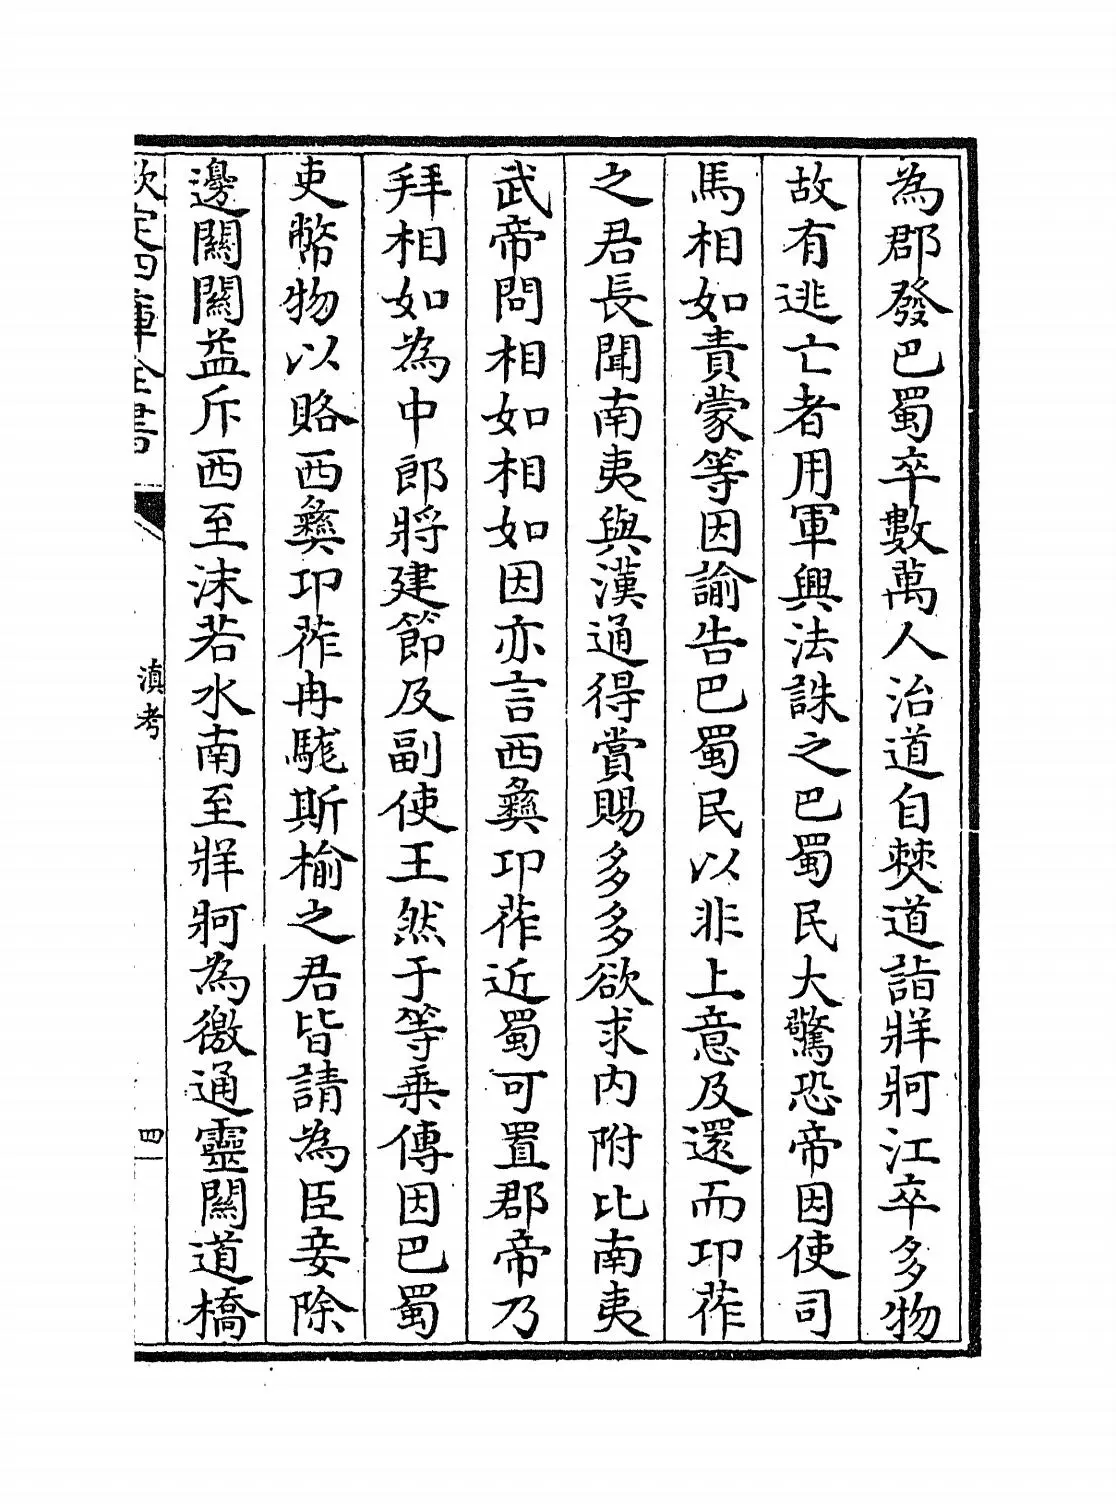 為郡發巴蜀卒數萬人治道自僰道詣牂牁江卒多物
故有逃亡者用軍興法誅之巴蜀民大驚恐帝因使司
馬相如責蒙等因諭告巴蜀民以非上意及還而卭莋
之君長聞南夷與漢通得賞賜多多欲求内附比南夷
武帝問相如相如因亦言西彝卭莋近蜀可置郡帝乃
拜相如為中郎將建節及副使王然于等乗傳因巴蜀
吏幣物以賂西彝卭莋冉駹斯榆之君皆請為臣妾除
邊關關益斥西至沬若水南至牂牁為徼通靈關道橋
欽定四庫全書
滇考
四